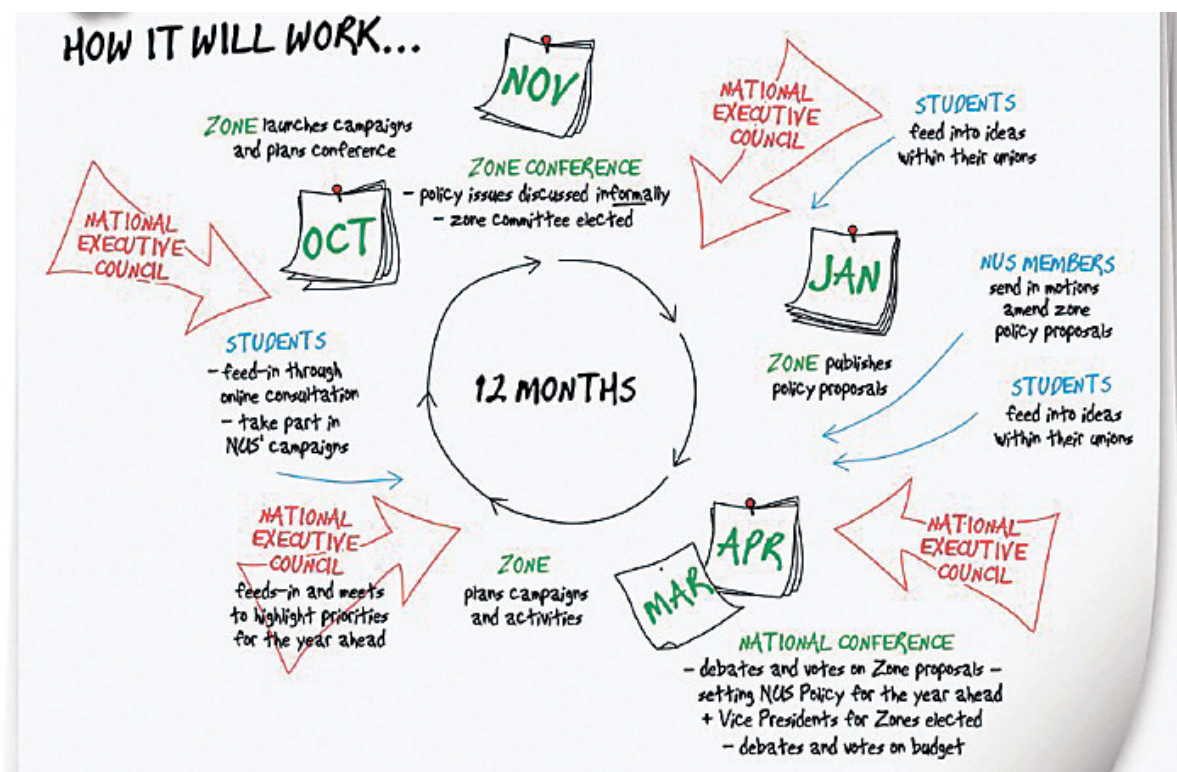 HOW IT WILL WORK...
NOV
ZONE launches campaigns
and plans conference
ZONE CONFERENCE
- policy issues discussed informally
- zone committee elected
NATIONAL
EXECUTIVE
COUNCIL
STUDENTS
feed into ideas
within their unions
NATIONAL
EXECUTIVE
COUNCIL
OCT
JAN
NUS MEMBERS
send in motions
amend zone
policy proposals
STUDENTS
- feed-in through
online consultation
- take part in
NUS' campaigns
12 MONTHS
ZONE publishes
policy proposals
STUDENTS
feed into ideas
within their unions
NATIONAL
EXECUTIVE
COUNCIL
feeds-in and meets
to highlight priorities
for the year ahead
ZONE
plans campaigns
and activities
MAR
APR
NATIONAL
EXECUTIVE
COUNCIL
NATIONAL CONFERENCE
- debates and votes on Zone proposals -
setting NUS Policy for the year ahead
+ Vice Presidents for Zones elected
- debates and votes on budget